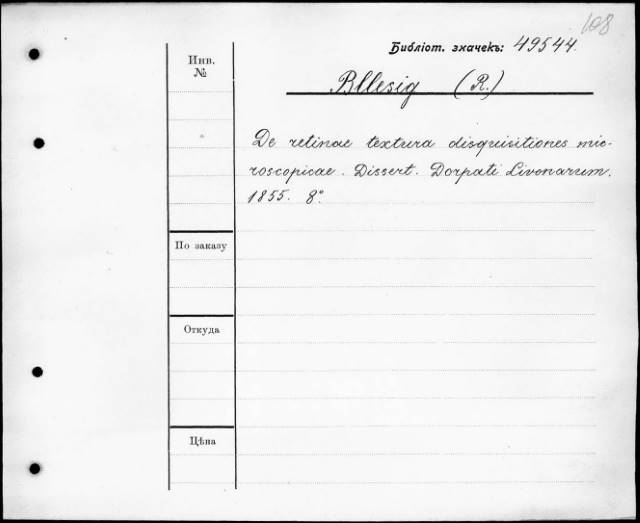 108
Библіот. значекъ: 49544.
Инв.
№
Bllesig (R.)
De retinae textura disquisitiones mic-
roscopicae. Dissert. Dorpati Livonarum.
1855. 8°.
По заказу
Откуда
Цѣна